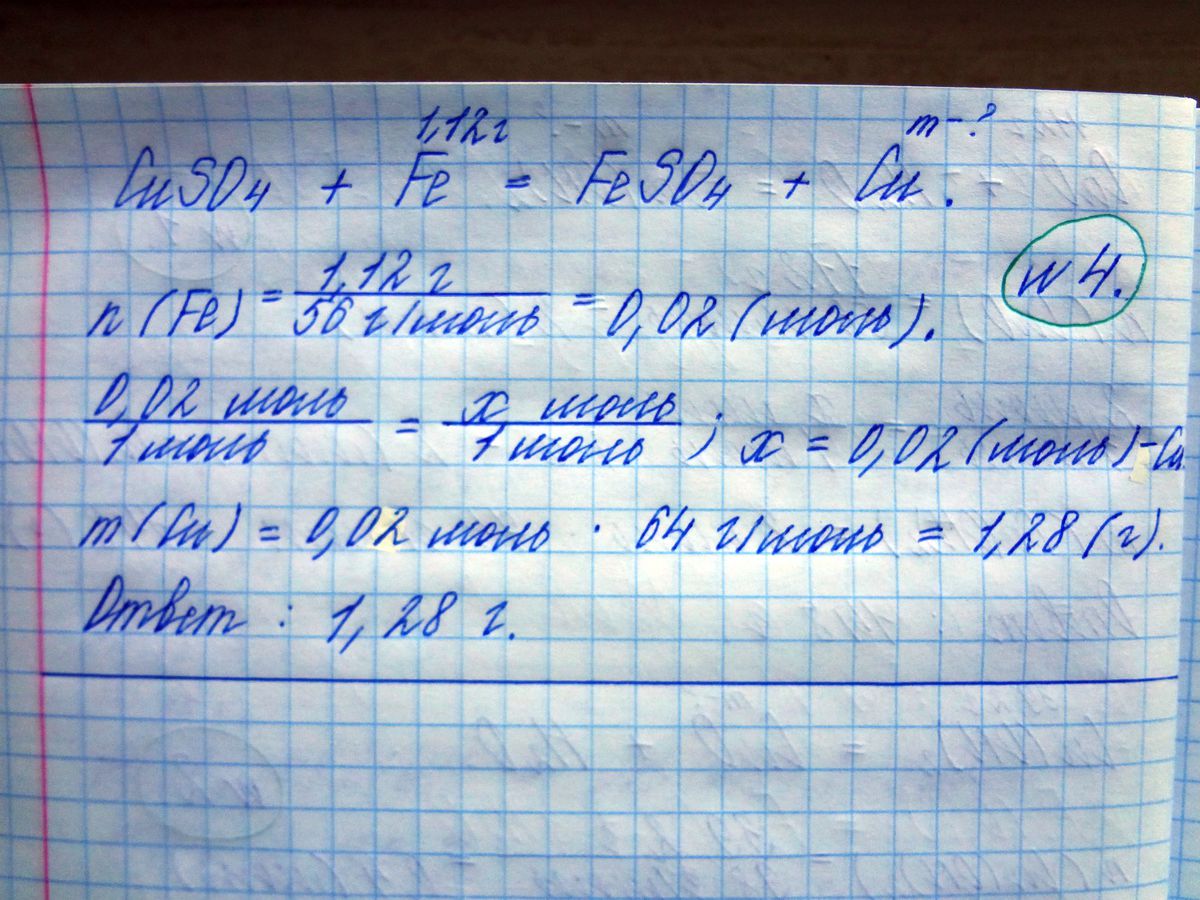 1,12 г m - ?
CuSO4 + Fe = FeSO4 + Cu.
N 4.
n (Fe) = 1,12 г / 56 г/моль = 0,02 (моль).
0,02 моль / 1 моль = x моль / 1 моль ; x = 0,02 (моль) - Cu
m (Cu) = 0,02 моль · 64 г/моль = 1,28 (г).
Ответ : 1,28 г.